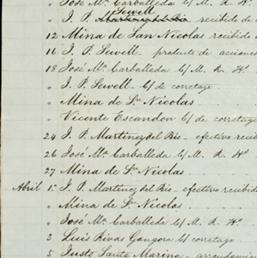 " José Mª Carballeda c/ M. R. Hª
Sewell
" J. P. recibido de
12 Mina de San Nicolas recibido
16 J. P. Sewell - producto de acciones
18 José Mª Carballeda c/ M. R. Hª
" J. P. Sewell - c/ de corretaje
" Mina de Sn Nicolas
" Vicente Escandon c/ de corretaje
24 J. P. Martinez del Rio - efectivo recibi
26 José Mª Carballeda c/ M. R. Hª
27 Mina de Sn Nicolas
Abril 1º J. P. Martinez del Rio - efectivo recibid
" Mina de Sn Nicolas
" José Mª Carballeda c/ M. R. Hª
3 Luis Rivas Gongora c/ corretaje
5 Justo Santa Marina - arrendamien